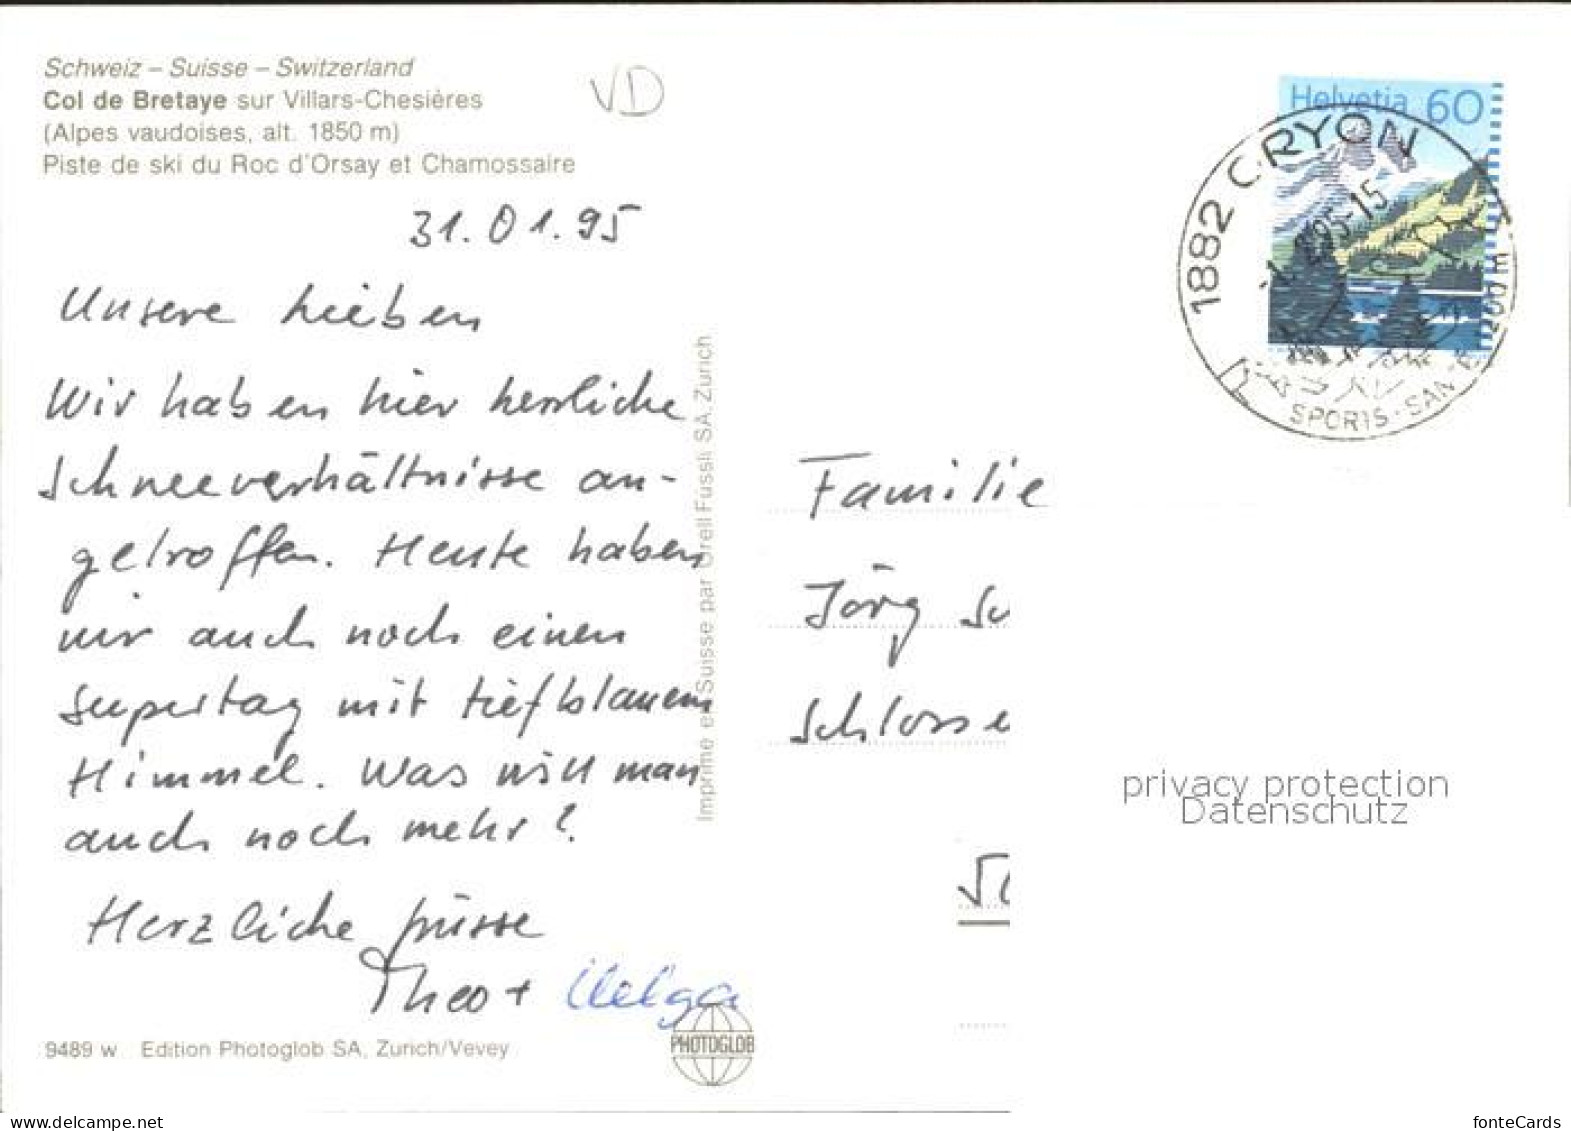 Schweiz – Suisse – Switzerland
Col de Bretaye sur Villars-Chesières
(Alpes vaudoises, alt. 1850 m)
Piste de ski du Roc d'Orsay et Chamossaire
VD
31.01.95
Unsere lieben
Wir haben hier herrliche
Schneeverhältnisse an-
getroffen. Heute haben
wir auch noch einen
Supertag mit tiefblauem
Himmel. Was will man
auch noch mehr?
Herzliche Grüsse
Theo + Helga
9489 w Edition Photoglob SA, Zurich/Vevey
PHOTOGLOB
Imprimé en Suisse par Orell Füssli SA, Zurich
Helvetia 60
1882 GRYON
-1. 2.95-15
SPORTS · SANTÉ
1200 m
Familie
Jörg
Schlosse
privacy protection
Datenschutz
fonteCards